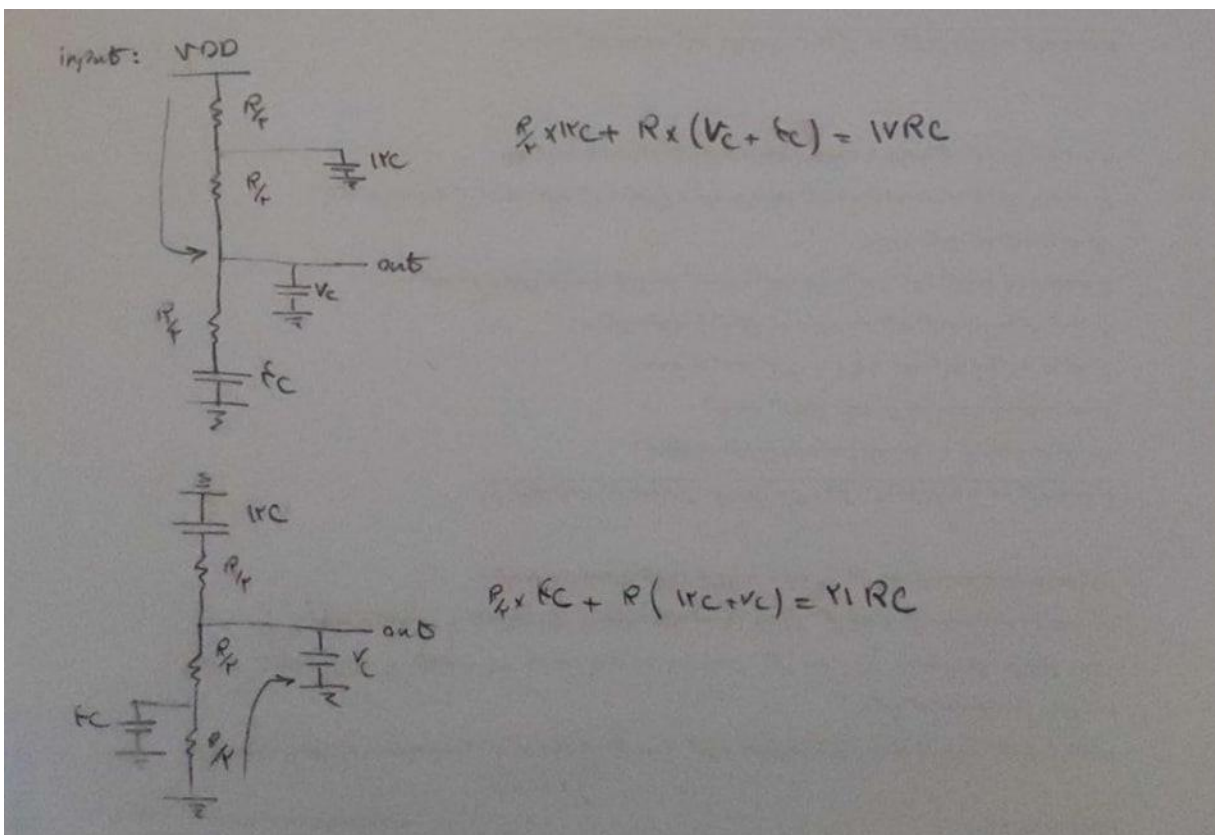 input: VDD
R/۲
۱۲C
R/۲
out
۷C
R/۲
۴C
R/۲ × ۱۲C + R × (۷C + ۴C) = ۱۷RC
۱۲C
R/۲
out
R/۲
۷C
۴C
R/۲
R/۲ × ۴C + R (۱۲C + ۷C) = ۲۱ RC